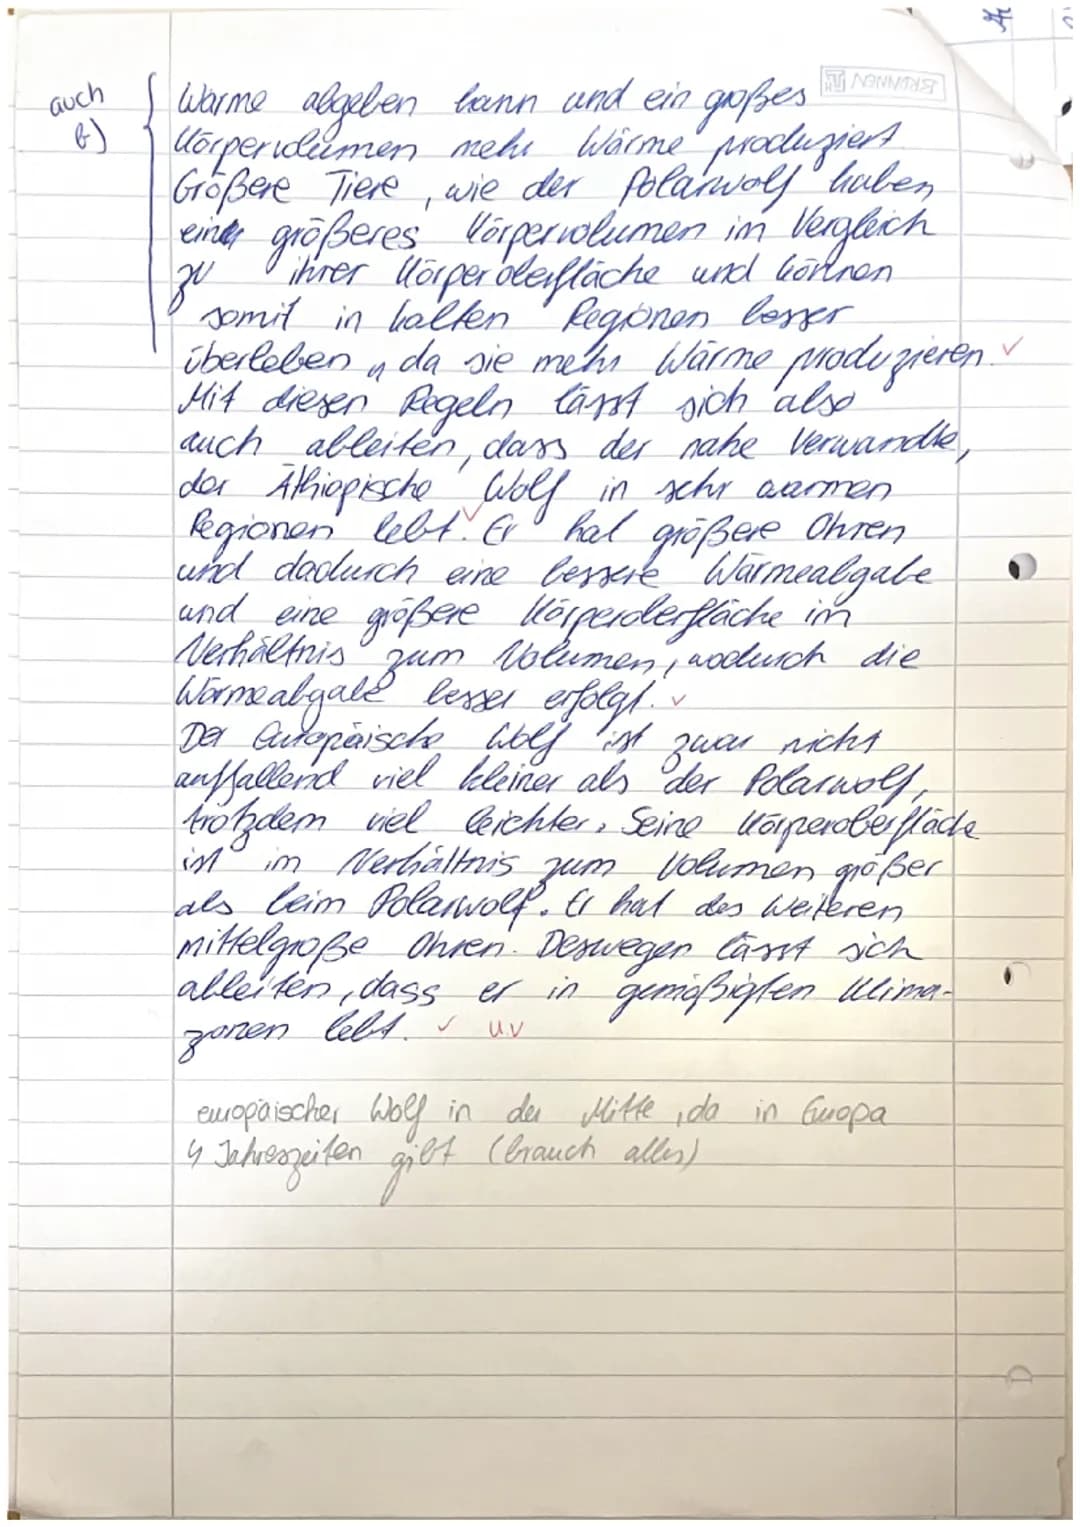 auch
b)
Wärme abgeben kann und ein großes
Körpervolumen mehr Wärme produziert.
Größere Tiere, wie der Polarwolf haben
ein größeres Körpervolumen im Vergleich
zu ihrer Körperoberfläche und können
somit in kalten Regionen besser
überleben, da sie mehr Wärme produzieren.
Mit diesen Regeln lässt sich also
auch ableiten, dass der nahe Verwandte,
der Äthiopische Wolf in sehr warmen
Regionen lebt. Er hat größere Ohren
und dadurch eine bessere Wärmeabgabe
und eine größere Körperoberfläche im
Verhältnis zum Volumen, wodurch die
Wärmeabgabe besser erfolgt.
Der Europäische Wolf ist zwar nicht
auffallend viel kleiner als der Polarwolf,
trotzdem viel leichter. Seine Körperoberfläche
ist im Verhältnis zum Volumen größer
als beim Polarwolf. Er hat des Weiteren
mittelgroße Ohren. Deswegen lässt sich
ableiten, dass er in gemäßigten Klima-
zonen lebt. u.v
europäischer Wolf in der Mitte, da in Europa
4 Jahreszeiten gibt (brauch alles)